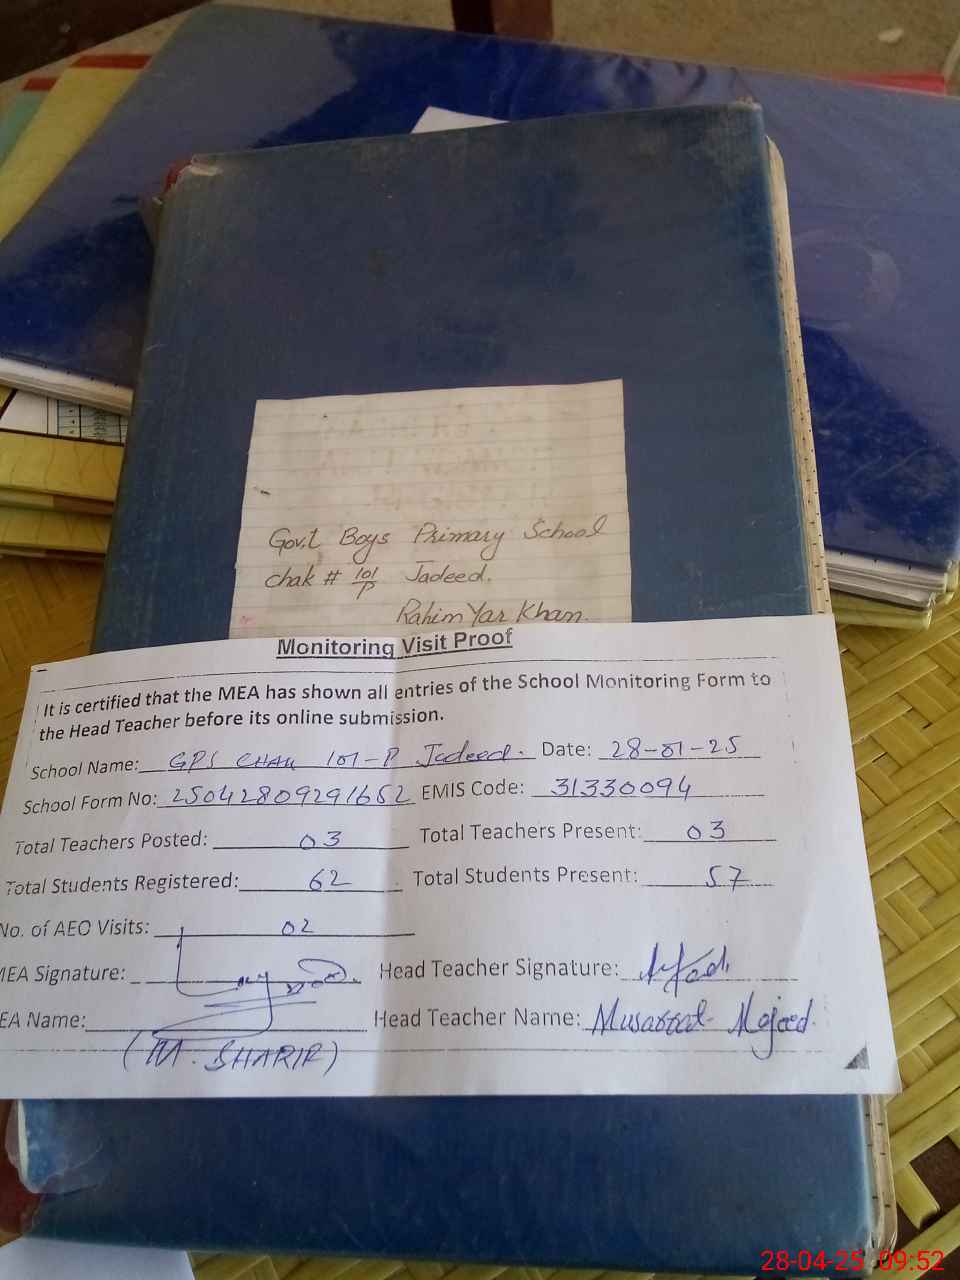 Gov.t Boys Primary School
chak # 101/P Jadeed.
Rahim Yar Khan.
Monitoring Visit Proof
It is certified that the MEA has shown all entries of the School Monitoring Form to
the Head Teacher before its online submission.
School Name: GPS CHAK 101-P Jadeed. Date: 28-01-25
School Form No: 25042809291652 EMIS Code: 31330094
Total Teachers Posted: 03 Total Teachers Present: 03
Total Students Registered: 62 Total Students Present: 57
No. of AEO Visits: 02
MEA Signature: Head Teacher Signature:
EA Name: Head Teacher Name: Musarrat Majeed.
(M. SHARIF)
28-04-25 09:52